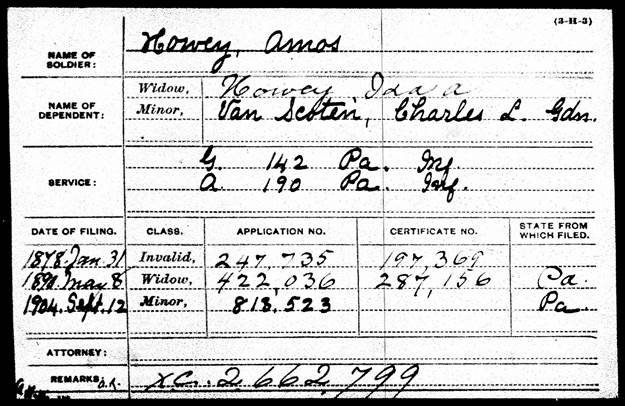 (3-H-3)
NAME OF SOLDIER: Howey, Amos
NAME OF DEPENDENT: Widow, Howey Ida A
Minor, Van Scoten, Charles L. Gdn.
SERVICE: G. 142 Pa. Inf
A. 190 Pa. Inf.
DATE OF FILING. CLASS. APPLICATION NO. CERTIFICATE NO. STATE FROM WHICH FILED.
1878. Jan. 31 Invalid, 247,735 197,369
May 8 Widow, 422,036 287,156 Pa.
1904. Sept. 12 Minor, 813.523 Pa
ATTORNEY:
REMARKS: XC. 2 662 799